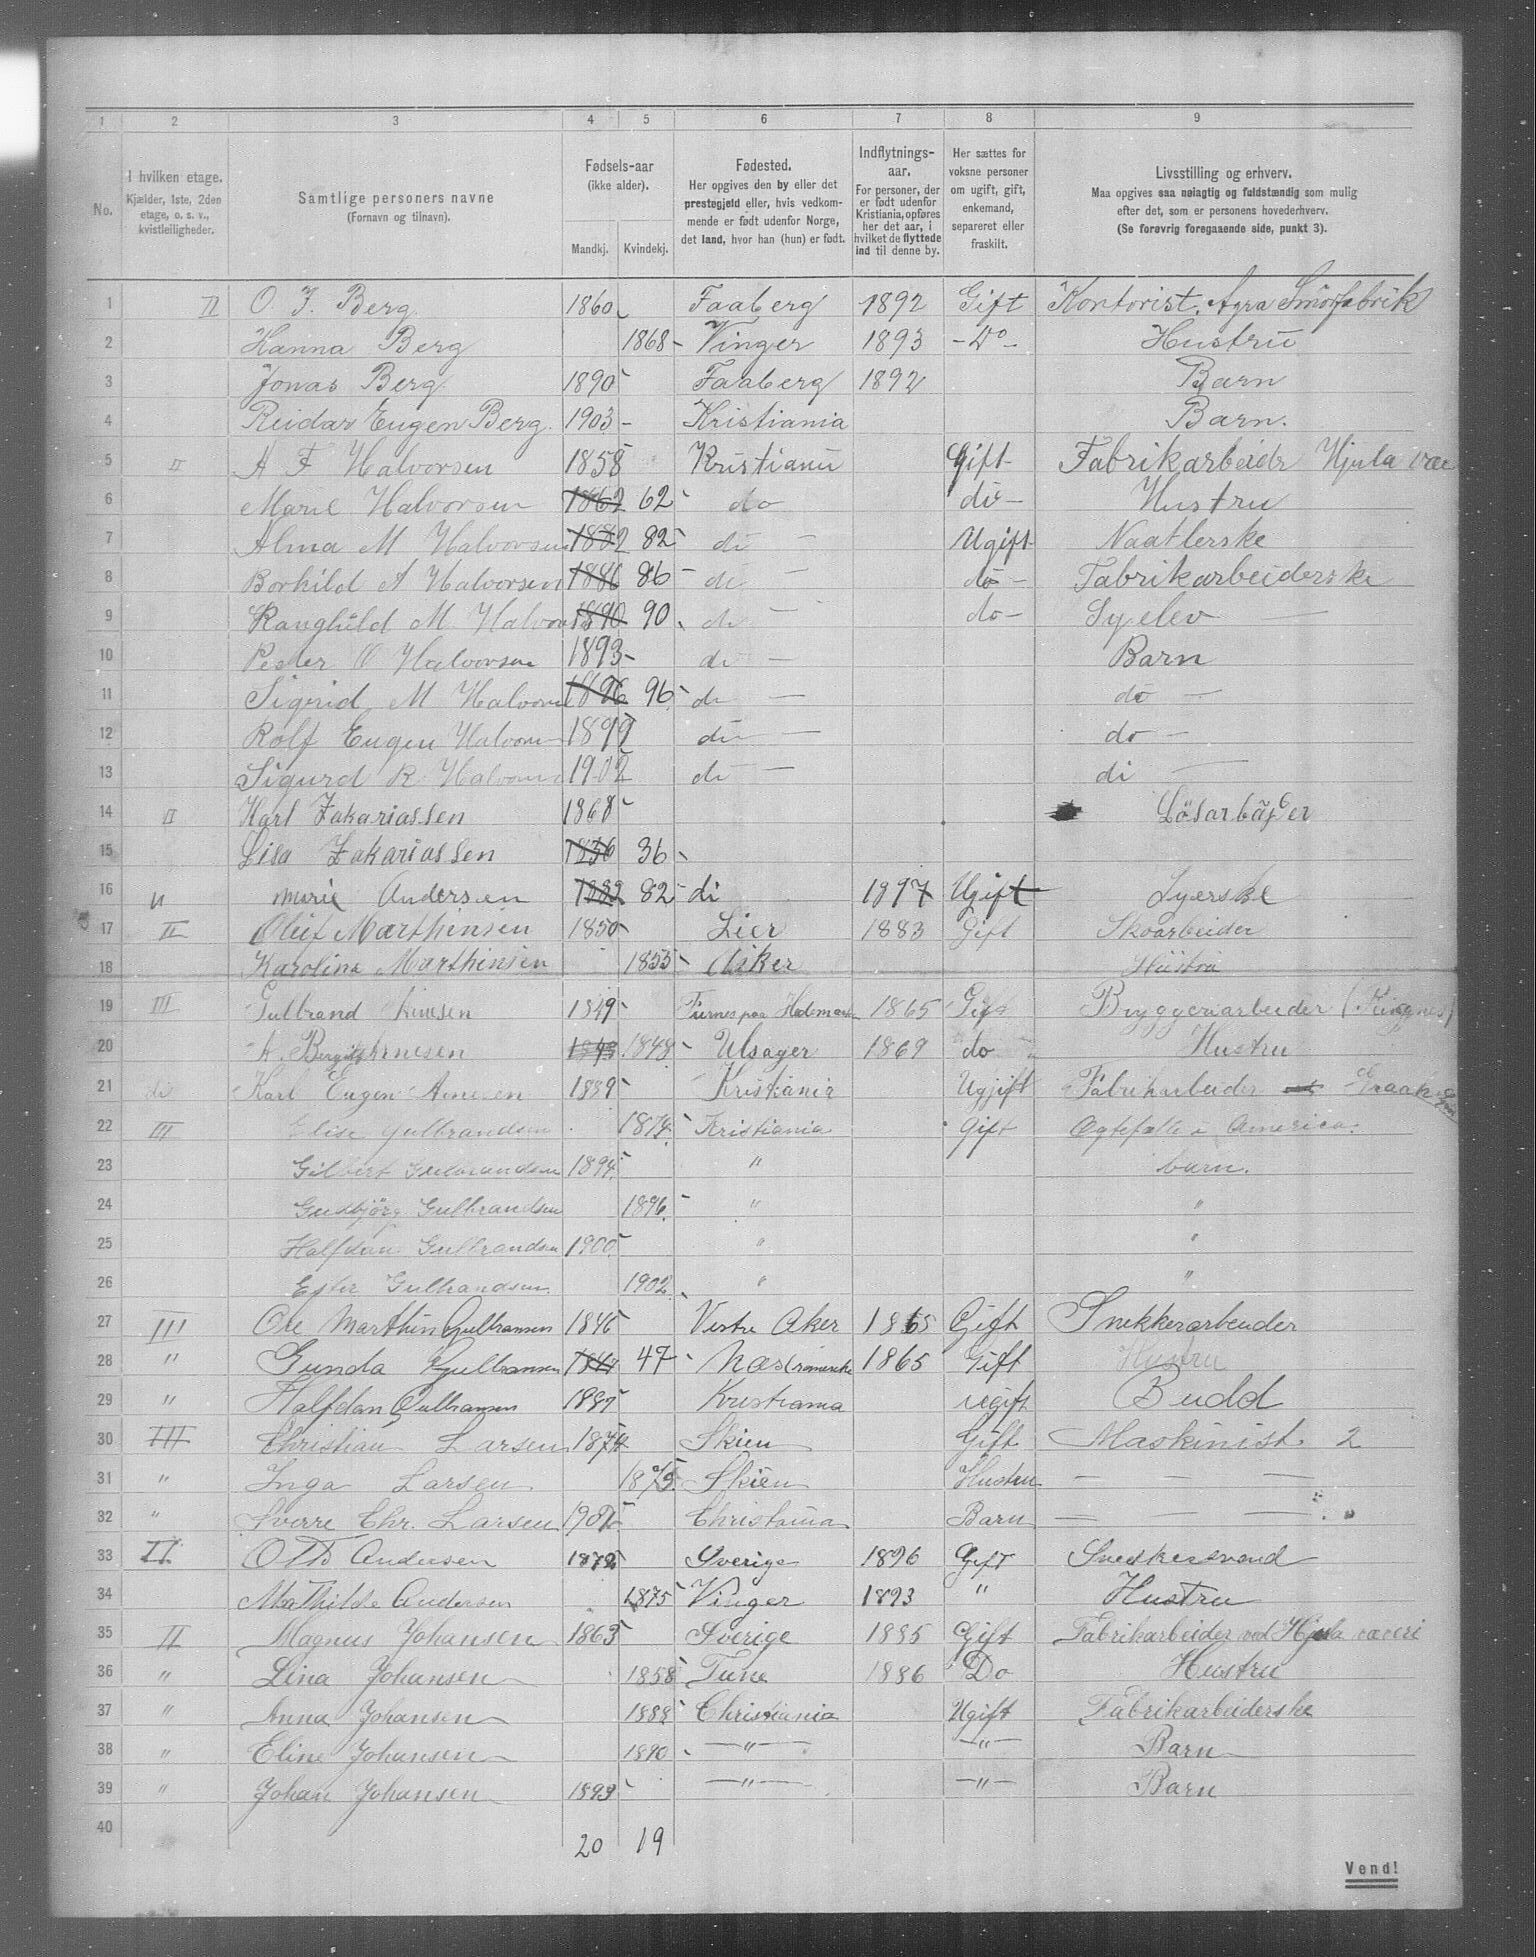 1 2 3 4 5 6 7 8 9
No.
I hvilken etage.
Kjælder, 1ste, 2den
etage, o. s. v.,
kvistleiligheder.
Samtlige personers navne
(Fornavn og tilnavn).
Fødsels-aar
(ikke alder).
Mandkj. Kvindekj.
Fødested.
Her opgives den by eller det
prestegjeld eller, hvis vedkom-
mende er født udenfor Norge,
det land, hvor han (hun) er født.
Indflytnings-
aar.
For personer, der
er født udenfor
Kristiania, opføres
her det aar, i
hvilket de flyttede
ind til denne by.
Her sættes for
voksne personer
om ugift, gift,
enkemand,
separeret eller
fraskilt.
Livsstilling og erhverv.
Maa opgives saa nøiagtig og fuldstændig som mulig
efter det, som er personens hovederhverv.
(Se forøvrig foregaaende side, punkt 3).
1 II O J. Berg 1860 Faaberg 1892 Gift Kontorist. Agra Smörfabrik
2 Hanna Berg 1868 Vinger 1893 Do Hustru
3 Jonas Berg 1890 Faaberg 1892 Barn
4 Reidar Eugen Berg. 1903 Kristiania Barn.
5 II A F Halvorsen 1858 Kristiania Gift Fabrikarbeider Hjula
6 Marie Halvorsen 1862 62 do do Hustru
7 Alma M Halvorsen 1882 82 do Ugift Naatlerske
8 Borhild A Halvorsen 1886 86 do do Fabrikarbeiderske
9 Ranghild M. Halvorsen 1890 90 do do Syelev
10 Peder O Halvorsen 1893 do Barn
11 Sigrid M Halvorsen 1896 96 do do
12 Rolf Eugen Halvorsen 1899 do do
13 Sigurd R. Halvorsen 1902 do do
14 II Karl Zakariassen 1868 Lösarbäjder
15 Lisa Zakariassen 1836 36
16 II Marie Andersen 1882 82 di 1897 Ugift Syerske
17 II Oluf Marthinsen 1850 Lier 1883 Gift Skoarbeider
18 Karoline Marthinsen 1855 Asker Hustru
19 III Gulbrand Arnesen 1849 Furnes paa Hedemarken 1865 Gift Bryggeriarbeider (Ringnes)
20 A. Bergitte Arnesen 1848 1848 Ulsager 1869 do Hustru
21 do Karl Eugen Arnesen 1889 Kristiania Ugjift Fabrikarbeider
22 III Elise Gulbrandsen 1874 Kristiania Gift Ægtefælle i America.
23 Gilbert Gulbrandsen 1894 " barn.
24 Gudbjörg Gulbrandsen 1896. " "
25 Halfdan Gulbrandsen 1900 " "
26 Ester Gulbrandsen 1902 " "
27 III Ole Marthin Gulbransen 1846 Vestre Aker 1865 Gift Snekkerarbeider
28 " Gunda Gulbransen 1847 47 Næs 1865 Gift Hustru
29 " Halfdan Gulbransen 1887 Kristiania ugift Budd
30 III Christian Larsen 1874 Skien Gift Maskinist 2
31 " Inga Larsen 1875 Skien Hustru — — —
32 " Sverre Chr. Larsen 1901 Christiania Barn — — —
33 II Otto Andersen 1872 Sverige 1896 Gift Snedkersvend
34 Mathilde Andersen 1875 Vinger 1893 " Hustru
35 II Magnus Johansen 1863 Sverige 1885 Gift Fabrikarbeider ved Hjula væveri
36 " Lina Johansen 1858 Tune 1886 Do Hustru
37 " Anna Johansen 1888 Christiania Ugift Fabrikarbeiderske
38 " Eline Johansen 1890 — " — — " — Barn
39 " Johan Johansen 1893 — " — — " — Barn
40
20 19
Vend!